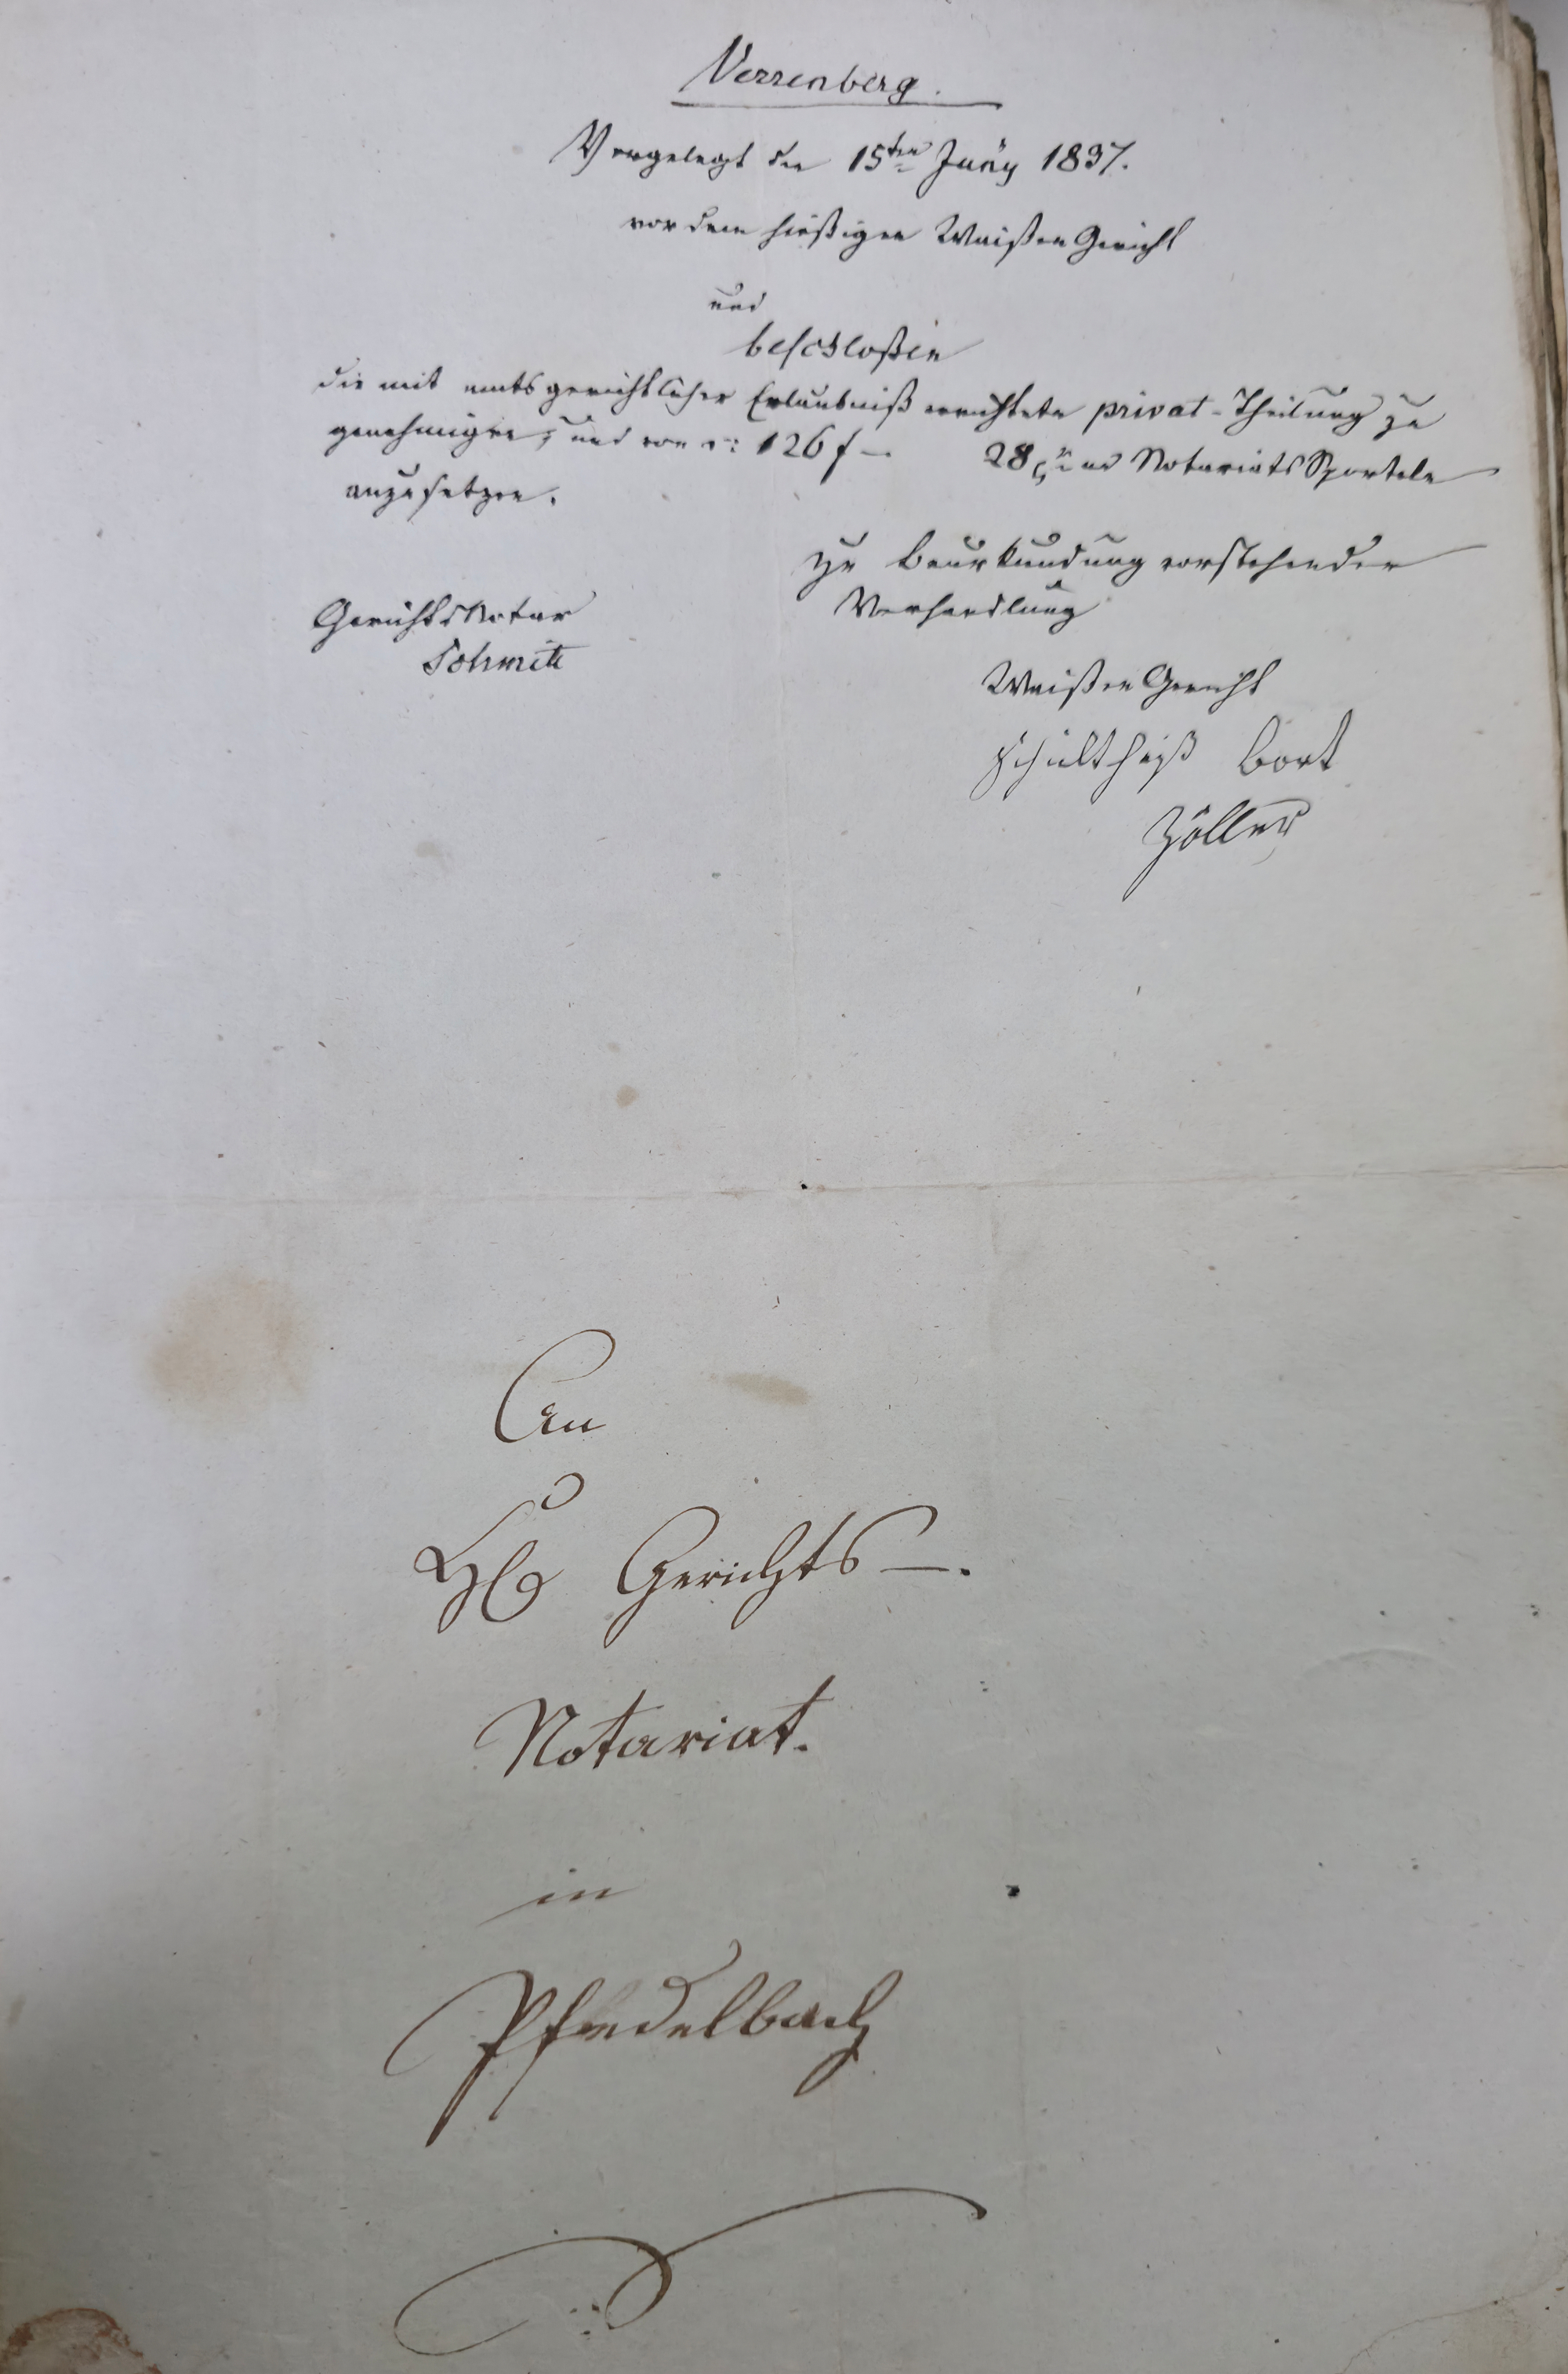 Verrenberg.
Vorgelegt den 15ten Juny 1837.
vor dem hießigen Waißen Gericht
und
beschloßen
die mit amtsgerichtlicher Erlaubniß errichtete privat-Theilung zu
genehmigen, und von 126 f — 28 Notariats Sporteln
anzusetzen.
zu Beurkundung vorstehender
Verhandlung
Gerichts Notar
Schmitt
Waißen Gericht
Schultheiß Bort
Zöller
An
Gerichts —.
Notariat.
in
Pfedelbach